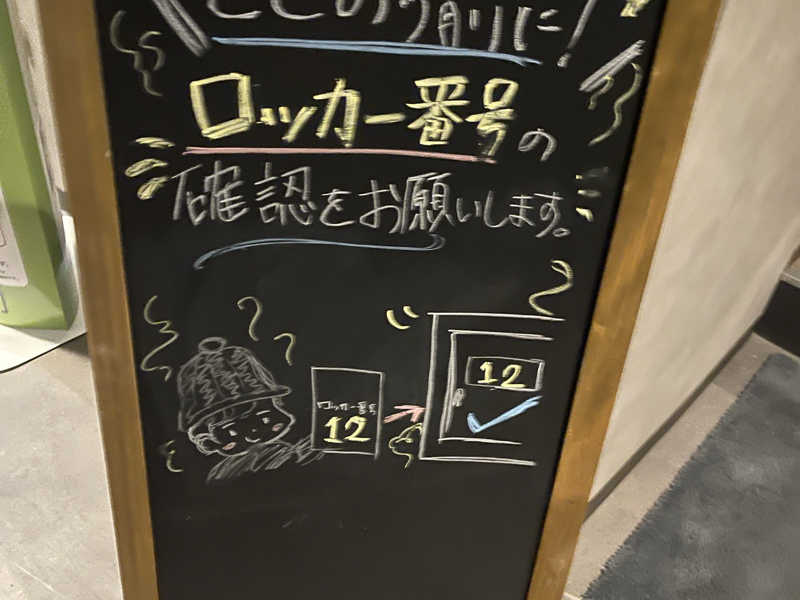 の前に！
ロッカー番号の
確認をお願いします。
12
ロッカー番号
12